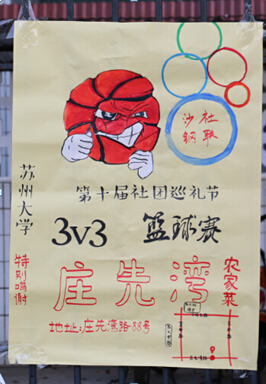 沙社
钢联
苏州大学
第十届社团巡礼节
3v3 篮球赛
特别鸣谢
庄先湾
农家菜
地址:庄先湾路88号